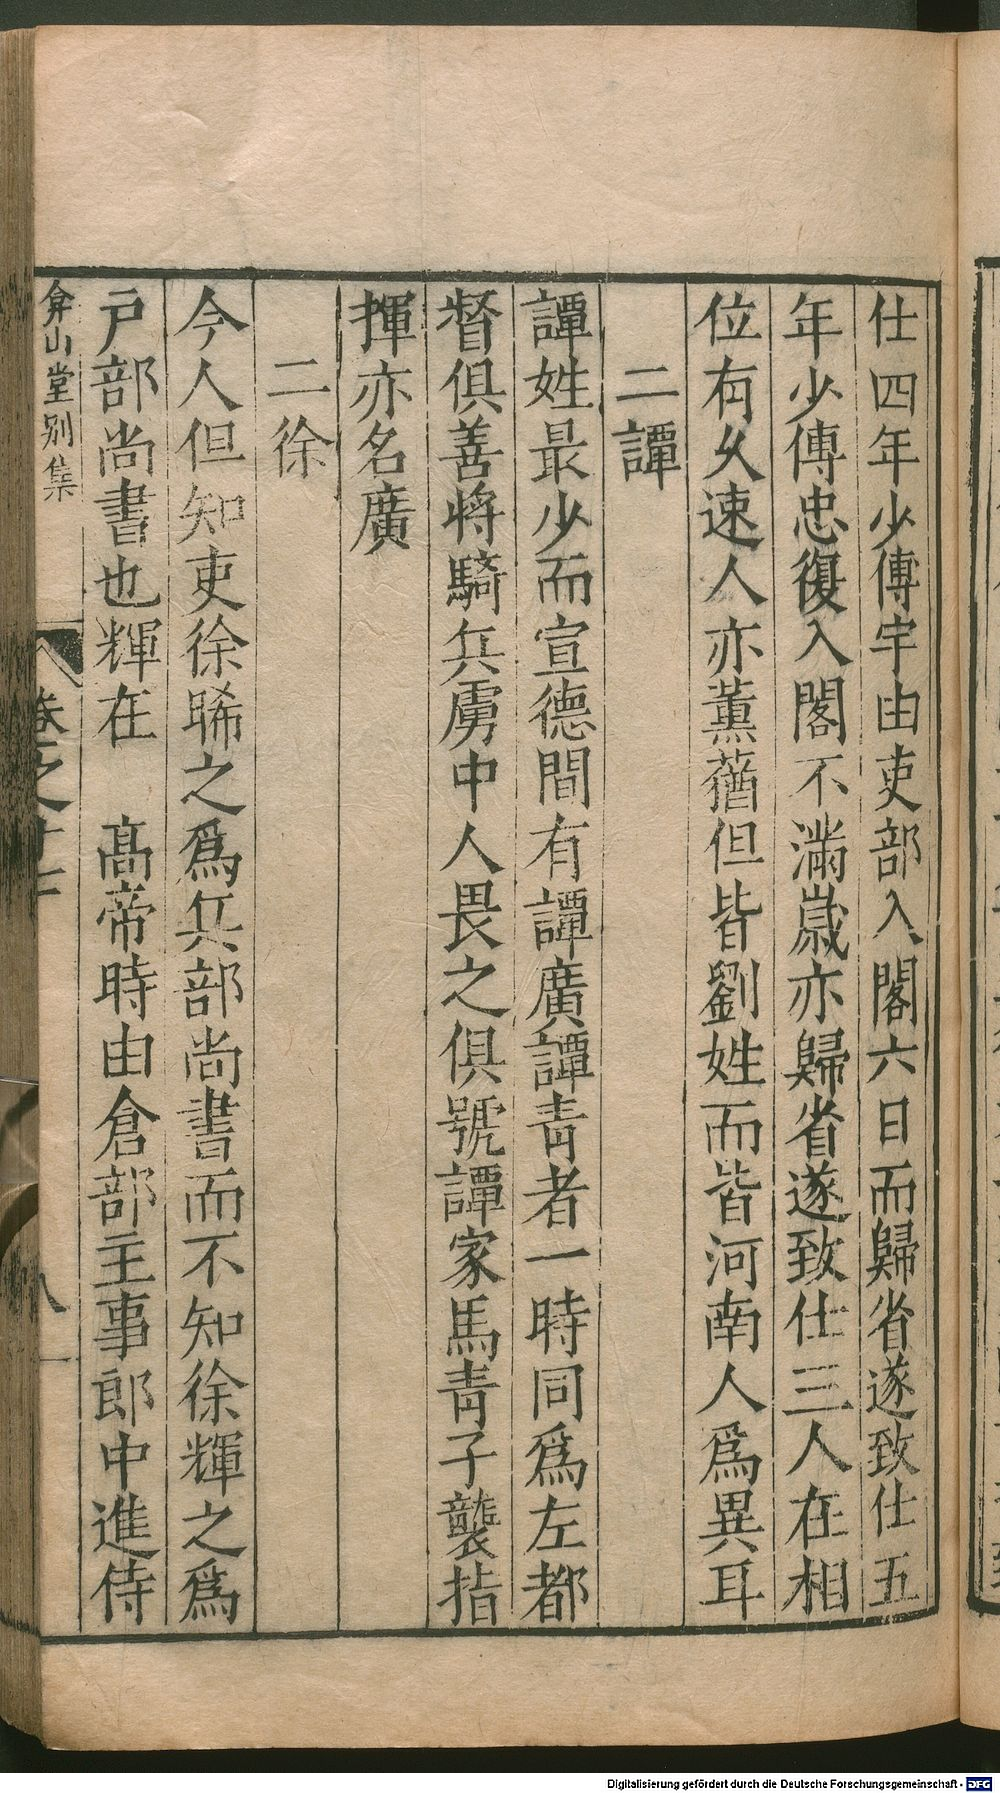 仕四年少傅宇由吏部入閣六日而歸省遂致仕五
年少傅忠復入閣不滿歲亦歸省遂致仕三人在相
位有久速人亦薰蕕但皆劉姓而皆河南人爲異耳
二譚
譚姓最少而宣德間有譚廣譚青者一時同爲左都
督俱善將騎兵虜中人畏之俱號譚家馬青子襲指
揮亦名廣
二徐
今人但知吏徐晞之爲兵部尚書而不知徐輝之爲
戶部尚書也輝在　高帝時由倉部主事郎中進侍
弇山堂別集
卷之十七
八
Digitalisierung gefördert durch die Deutsche Forschungsgemeinschaft - DFG